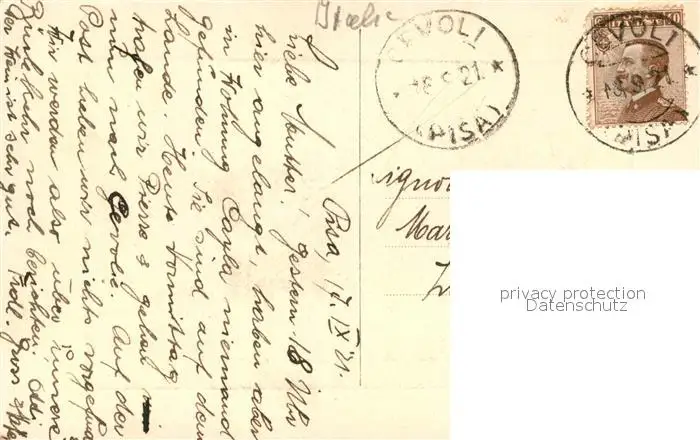 Italie
CEVOLI
18.9.21
(PISA)
CEVOLI
18.9.21
(PISA)
Pisa, 17. IX 21.
Liebe Mutter! Gestern 18 Uhr
hier angelangt, haben aber
in Wohnung Cayla niemand
gefunden. Sie sind auf dem
Lande. Heute Vormittag
haben wir Presse & gehen
nun nach Cevoli. Auf der
Post haben wir nichts vorgefun
Wir werden also über unsere
Rückkehr noch berichten.
Der Wein ist sehr gut.
privacy protection
Datenschutz